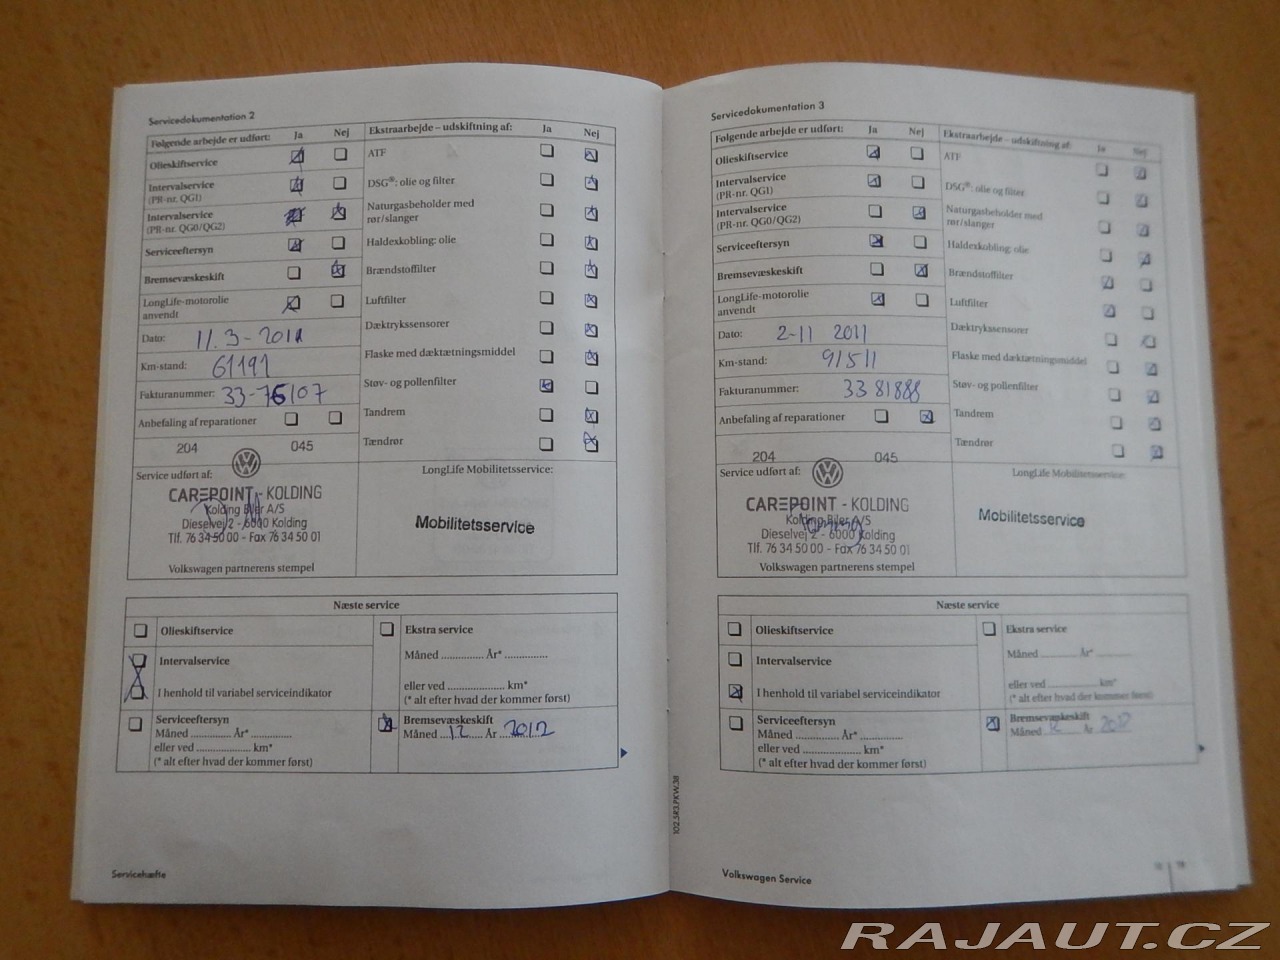 Servicedokumentation 2
Følgende arbejde er udført: Ja Nej
Olieskiftservice
Intervalservice
(PR-nr. QG1)
Intervalservice
(PR-nr. QG0/QG2)
Serviceeftersyn
Bremsevæskeskift
LongLife-motorolie
anvendt
Dato: 11.3-2011
Km-stand: 61191
Fakturanummer: 33-76107
Anbefaling af reparationer
Ekstraarbejde – udskiftning af: Ja Nej
ATF
DSG®: olie og filter
Naturgasbeholder med
rør/slanger
Haldexkobling: olie
Brændstoffilter
Luftfilter
Dæktrykssensorer
Flaske med dæktætningsmiddel
Støv- og pollenfilter
Tandrem
Tændrør
204 045
Service udført af:
CAREPOINT - KOLDING
Kolding Biler A/S
Dieselvej 2 - 6000 Kolding
Tlf. 76 34 50 00 - Fax 76 34 50 01
Volkswagen partnerens stempel
LongLife Mobilitetsservice:
Mobilitetsservice
Næste service
Olieskiftservice
Intervalservice
I henhold til variabel serviceindikator
Serviceeftersyn
Måned .............. År* ..............
eller ved ................... km*
(* alt efter hvad der kommer først)
Ekstra service
Måned .............. År* ..............
eller ved ................... km*
(* alt efter hvad der kommer først)
Bremsevæskeskift
Måned 12 År 2012
Servicehæfte
Servicedokumentation 3
Følgende arbejde er udført: Ja Nej
Olieskiftservice
Intervalservice
(PR-nr. QG1)
Intervalservice
(PR-nr. QG0/QG2)
Serviceeftersyn
Bremsevæskeskift
LongLife-motorolie
anvendt
Dato: 2-11 2011
Km-stand: 91511
Fakturanummer: 33 81888
Anbefaling af reparationer
Ekstraarbejde – udskiftning af: Ja Nej
ATF
DSG®: olie og filter
Naturgasbeholder med
rør/slanger
Haldexkobling: olie
Brændstoffilter
Luftfilter
Dæktrykssensorer
Flaske med dæktætningsmiddel
Støv- og pollenfilter
Tandrem
Tændrør
204 045
Service udført af:
CAREPOINT - KOLDING
Kolding Biler A/S
Dieselvej 2 - 6000 Kolding
Tlf. 76 34 50 00 - Fax 76 34 50 01
Volkswagen partnerens stempel
LongLife Mobilitetsservice:
Mobilitetsservice
Næste service
Olieskiftservice
Intervalservice
I henhold til variabel serviceindikator
Serviceeftersyn
Måned .............. År* ..............
eller ved ................... km*
(* alt efter hvad der kommer først)
Ekstra service
Måned .............. År* ..............
eller ved ................... km*
(* alt efter hvad der kommer først)
Bremsevæskeskift
Måned 12 År 2012
102.5R3.PKW.38
Volkswagen Service
RAJAUT.CZ